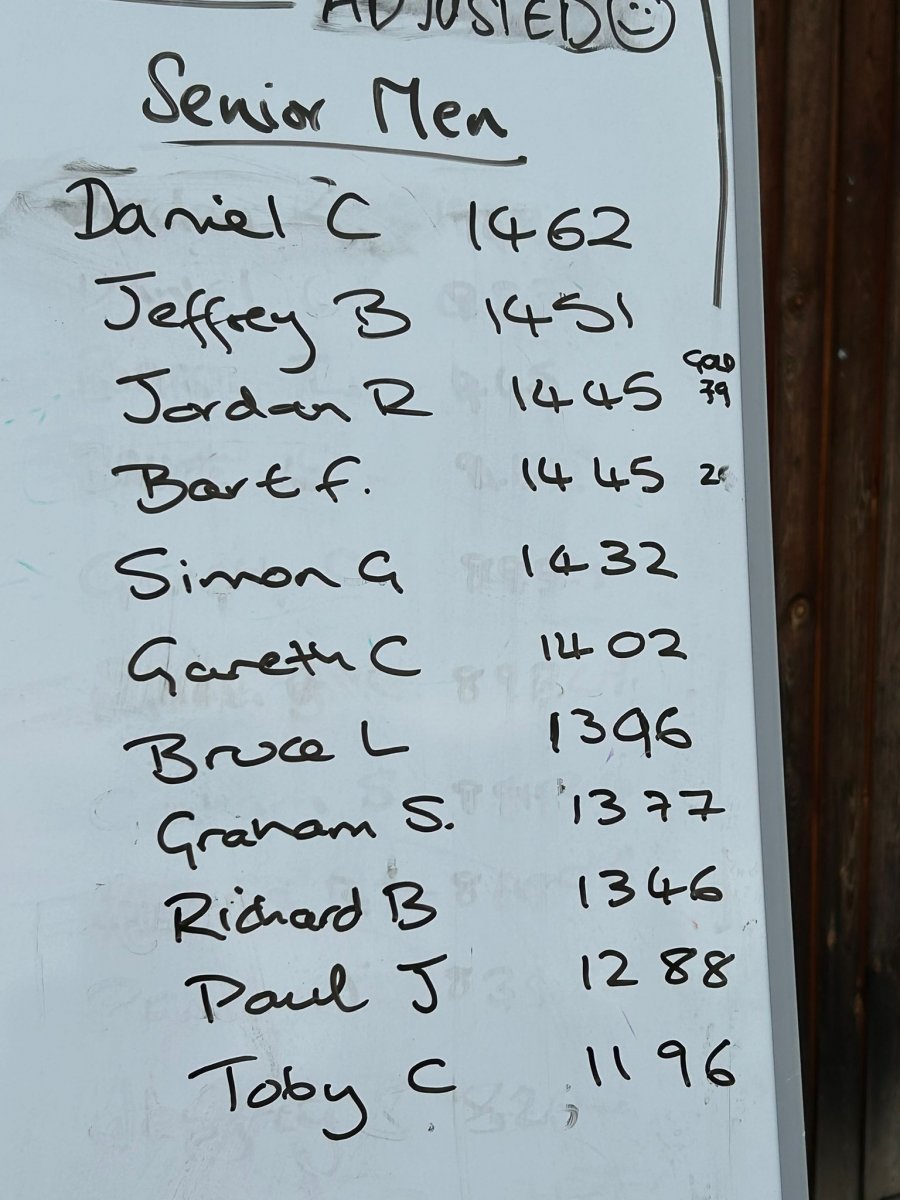 ADJUSTED
Senior Men
Daniel C 1462
Jeffrey B 1451
Jordan R 1445 GOLD 39
Bart f. 1445
Simon G 1432
Gareth C 1402
Bruce L 1396
Graham S. 1377
Richard B 1346
Paul J 1288
Toby C 1196